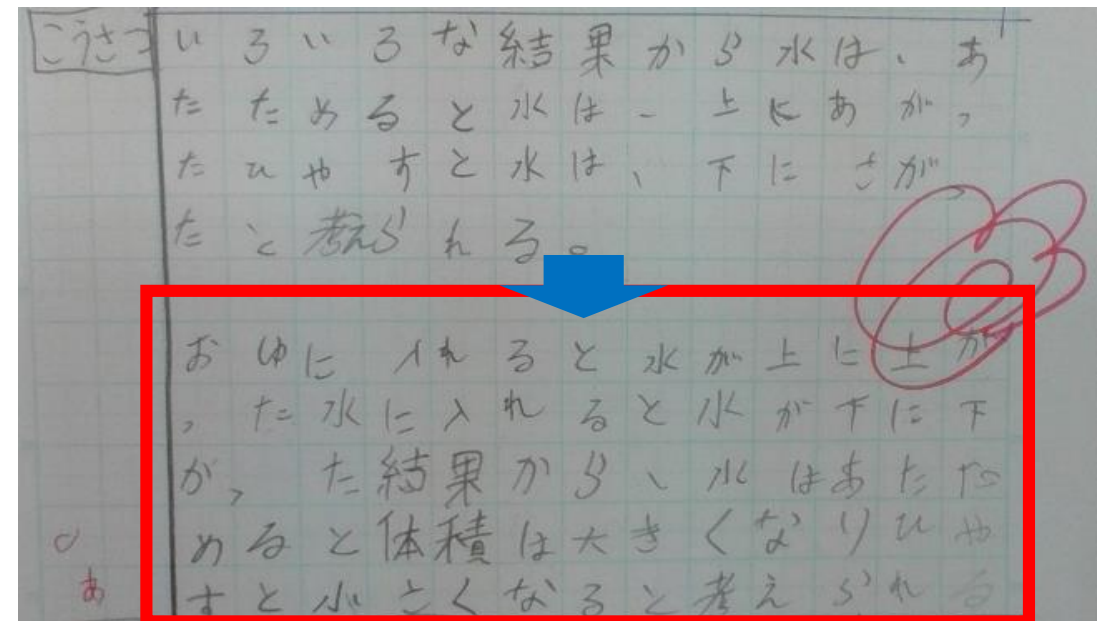 こうさつ
いろいろな結果から水は、あ
たためると水は、上にあがっ
たひやすと水は、下にさがっ
たと考えられる。
おゆに入れると水が上に上が
った水に入れると水が下に下
がった結果から、水はあたた
めると体積は大きくなりひや
すと小さくなると考えられる
あ